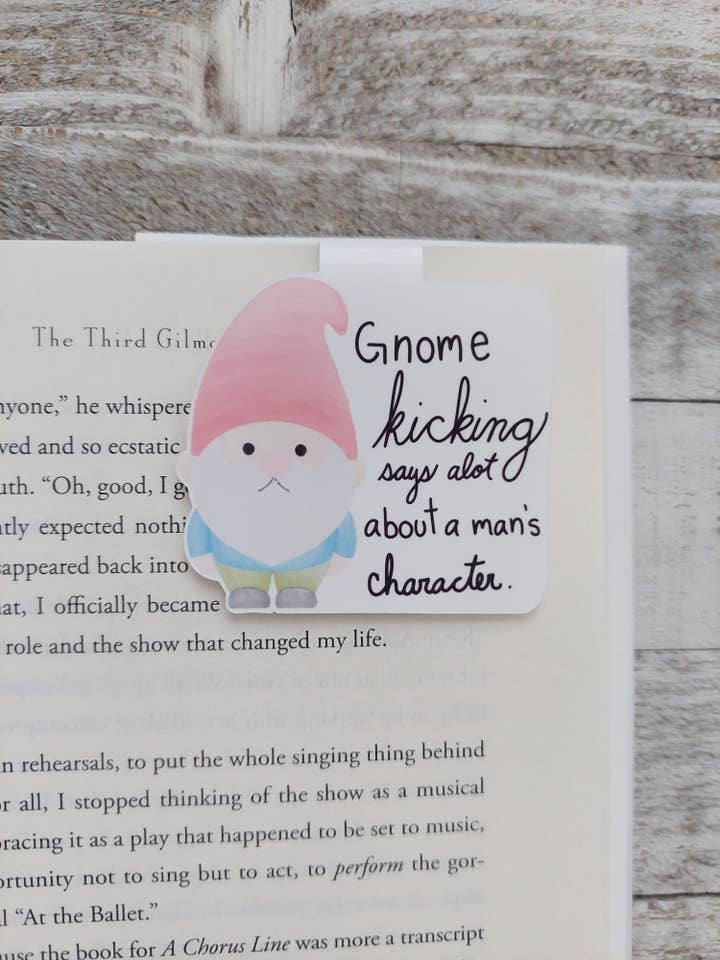 The Third
Gnome
kicking
says alot
about a man's
character.
yone,” he whispere
ved and so ecstatic
uth. “Oh, good, I g
tly expected nothi
appeared back into
at, I officially became
role and the show that changed my life.
n rehearsals, to put the whole singing thing behind
r all, I stopped thinking of the show as a musical
racing it as a play that happened to be set to music,
ortunity not to sing but to act, to perform the gor-
l “At the Ballet.”
use the book for A Chorus Line was more a transcript